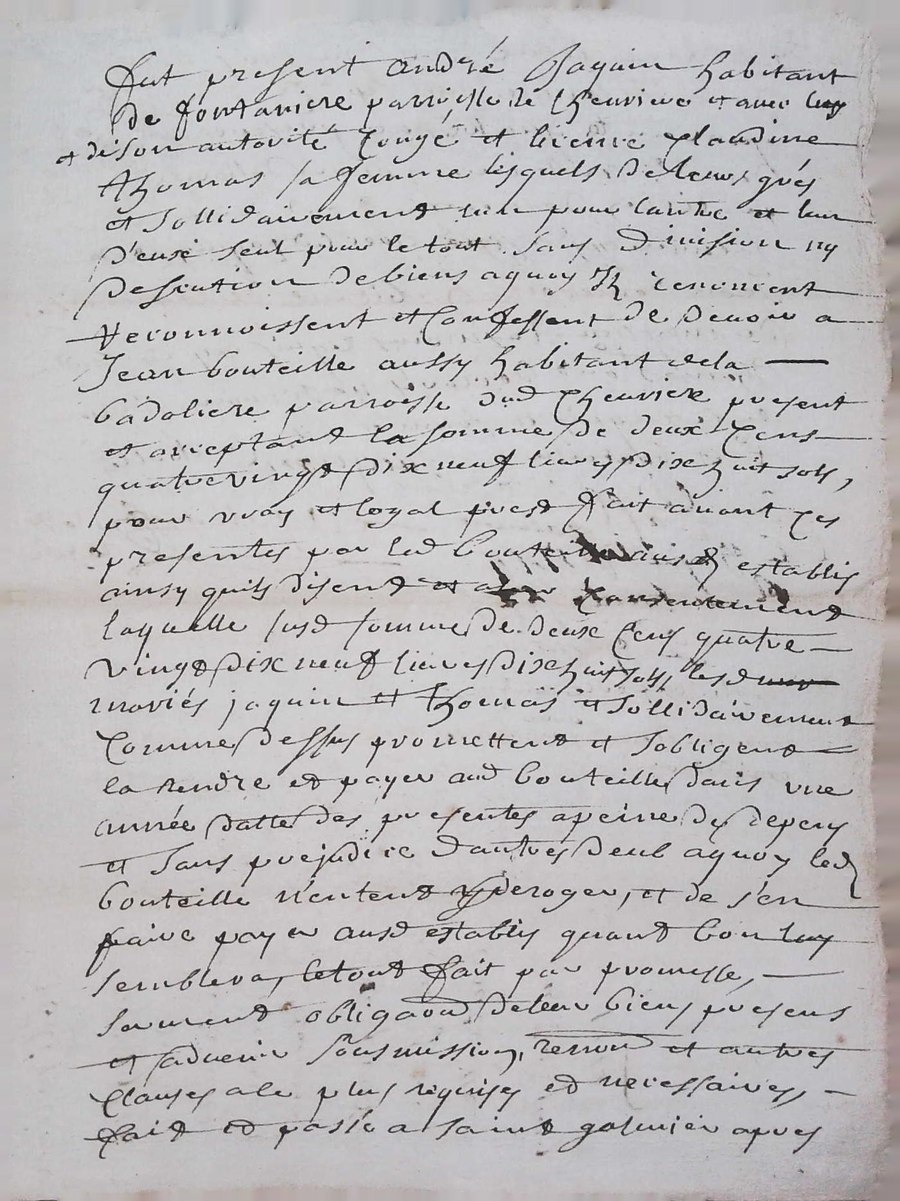 fut present andré Jaquin habitant
de fontaniere parroisse de Chevriere et avec luy
et de son autorité Congé et licence Claudine
thomas sa femme lesquels de leurs grés
et sollidairement un pour lautre et lun
d'eux seul pour le tout sans division ny
descution de biens aquoy ils renoncent
Reconnoissent et Confessent de devoir a
Jean bouteille aussy habitant de la
badoliere parroisse dud Chevriere present
et acceptant la somme de deux Cens
quatre vingt dix neuf livres dix huit sols,
pour vray et loyal prest fait avant Ces
presentes par led bouteille ausd establis
ainsy quils disent et Consentement
laquelle susd somme de deux Cens quatre
vingt dix neuf livres dix huit sols lesd
mariés jaquin et thomas et sollidairement
Comme dessus promettent et sobligent
la rendre et payer aud bouteille dans une
année datte des presentes apeine des depens
et sans prejudice d'autres deub aquoy led
bouteille n'entend y deroger, et de s'en
faire payer ausd establis quand bon luy
semblera, le tout fait par promesse,
serment obligaon de leur biens presens
et advenir sousmission, renon et autres
Clauses a le plus requises et necessaires,
fait et passé a saint galmier apres